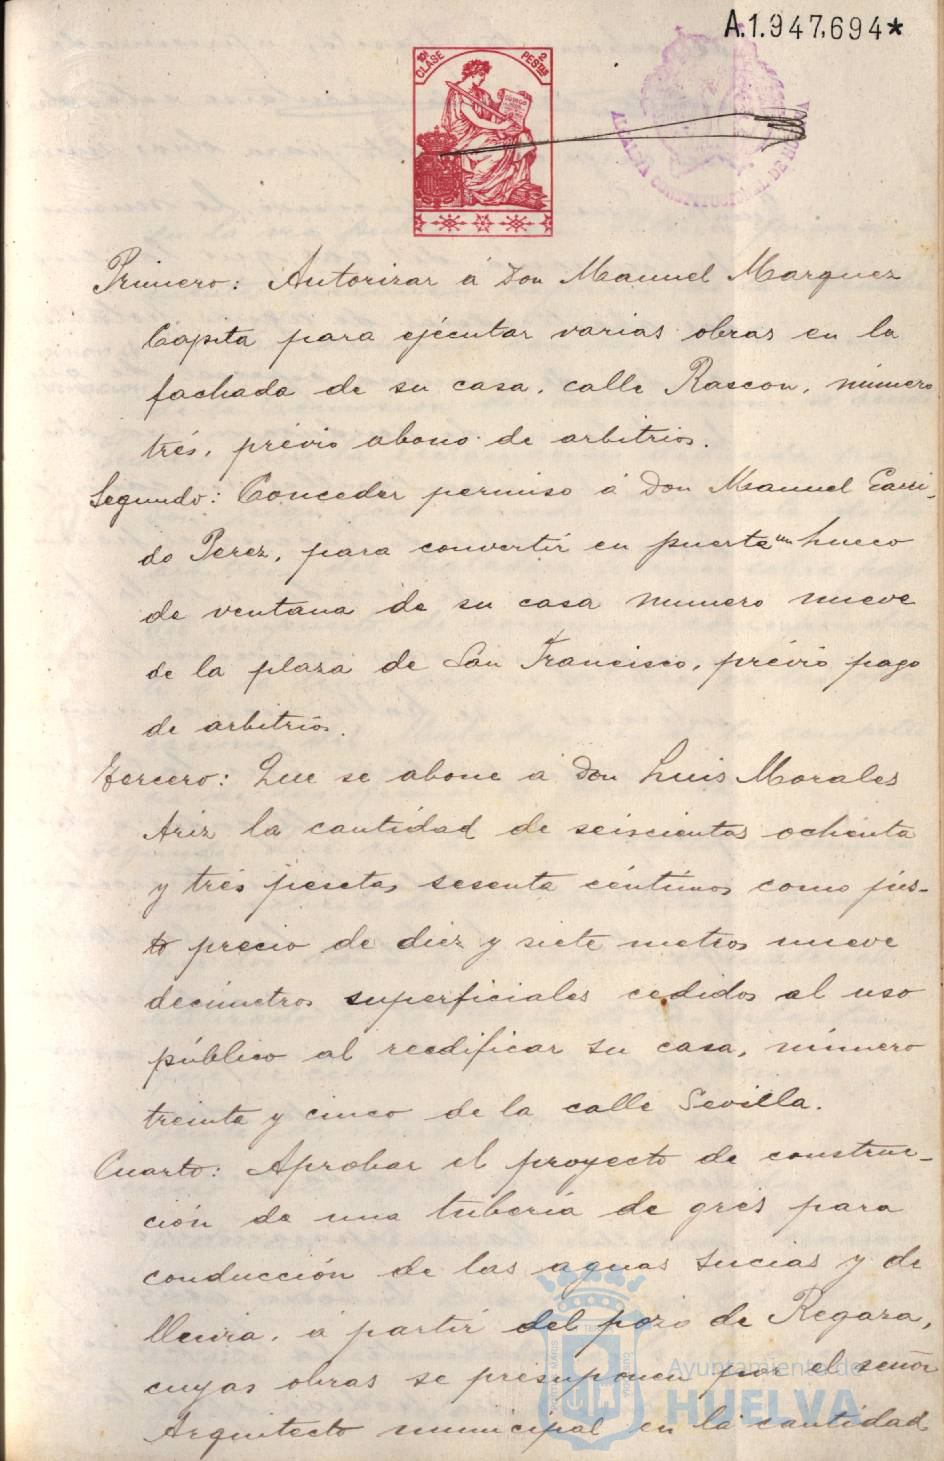 A.1.947,694*
10ª CLASE 2 PESTAS
ALCALDIA CONSTITUCIONAL DE HUELVA
Primero: Autorizar á Don Manuel Marquez
Capita para ejécutar varias obras en la
fachada de su casa, calle Rascon, número
trés, prévio abono de arbitrios.
Segundo: Conceder permiso á Don Manuel Garri-
do Perez, para convertir en puerta un hueco
de ventana de su casa numero nueve
de la plaza de San Francisco, prévio pago
de arbitrios.
Tercero: Que se abone á Don Luis Morales
Ariz la cantidad de seiscientas ochenta
y trés pesetas sesenta céntimos como jus-
to precio de diez y siete metros nueve
decímetros superficiales cedidos al uso
público al reedificar su casa, número
treinta y cinco de la calle Sevilla.
Cuarto: Aprobar el proyecto de construc-
ción de una tubería de grés para
conducción de las aguas sucias y de
lluvia, á partir del pozo de Regara,
cuyas obras se presuponen por el señor
Arquitecto municipal en la cantidad
Ayuntamiento de
HUELVA